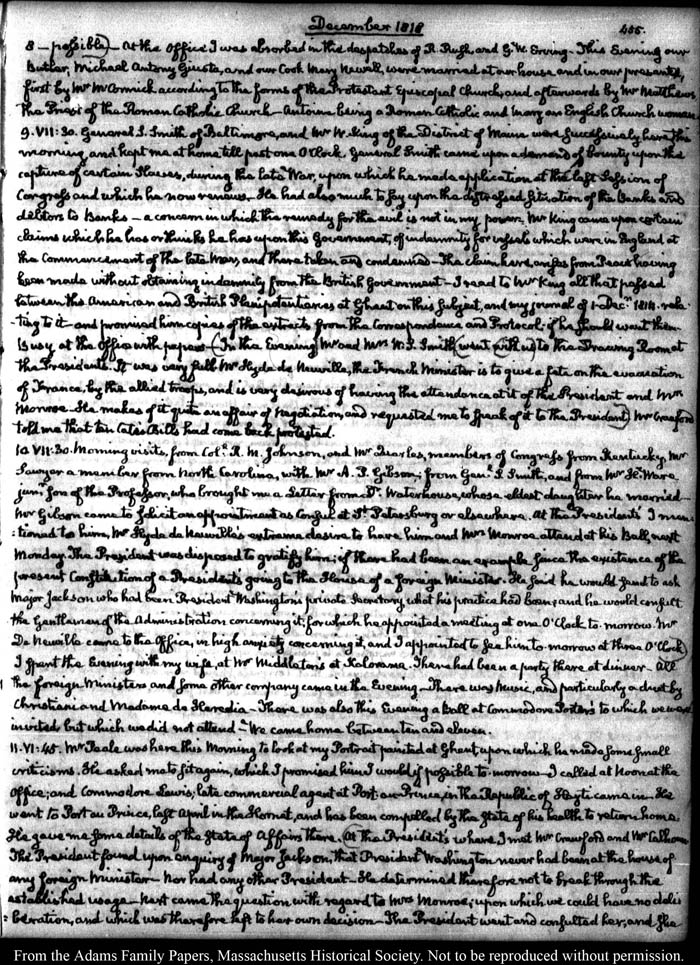 December 1818
455.
8 — possible) — At the Office I was absorbed in the despatches of R. Rush, and G. W. Erving — This Evening our
Butler, Michael Antony Giusta, and our Cook Mary Newell, were married at our house and in our presence,
first by Mr McCormick according to the forms of the Protestant Episcopal Church, and afterwards by Mr Matthews
the Priest of the Roman Catholic Church — Antoine being a Roman Catholic and Mary an English Church woman
9. VII: 30. General S. Smith of Baltimore, and Mr W. King of the District of Maine were successively here this
morning, and kept me at home till past one O'Clock. General Smith came upon a demand of bounty upon the
capture of certain Slaves, during the late War, upon which he made application at the last Session of
Congress and which he now renews. He had also much to say upon the distressed situation of the Banks and
debtors to Banks — a concern in which the remedy for the evil is not in my power. Mr King came upon certain
claims which he has or thinks he has upon this Government, of indemnity for vessels which were in England at
the Commencement of the late War, and there taken and condemned — The claim here, arises from Peace having
been made without obtaining indemnity from the British Government — I read to Mr King all that passed
between the American and British Plenipotentiaries at Ghent on this subject, and my journal of 1. Decr. 1814. rela
-ting to it — and promised him copies of the extracts from the Correspondence and Protocol; if he should want them
Busy at the office with papers — (In the Evening Mr and Mrs W. S. Smith (went with us) to the Drawing Room at
the Presidents. It was very full Mr Hyde de Neuville, the French Minister is to give a fete on the evacuation
of France, by the allied troops, and is very desirous of having the attendance at it of the President and Mrs
Monroe — He makes of it quite an affair of Negotiation, and requested me to speak of it to the President) Mr Crawford
told me that ten Cates Bills had come back protested.
10. VII: 30. Morning visits, from Coll. R. M. Johnson, and Mr Quarles, members of Congress from Kentucky, Mr
Sawyer a member from North Carolina, with Mr A. S. Gibson; from Genl. S. Smith, and from Mr H. Ware
junr. Son of the Professor, who brought me a Letter from Dr. Waterhouse, whose eldest daughter he married —
Mr Gibson came to solicit an appointment as Consul at St. Petersburg or elsewhere. At the Presidents' I men
-tioned to him, Mr Hyde de Neuville's extreme desire to have him and Mrs Monroe attend at his Ball, next
Monday. The President was disposed to gratify him; if there had been an example since the existence of the
present Constitution of a President's going to the House of a foreign Minister. He said he would send to ask
Major Jackson who had been President Washington's private Secretary, what his practice had been; and he would consult
the Gentlemen of the Administration concerning it; for which he appointed a meeting at one O'Clock to-morrow. Mr
De Neuville came to the Office, in high anxiety concerning it, and I appointed to see him to-morrow at three O'Clock)
I spent the Evening with my wife, at Mr Middleton's at Kalorama. There had been a party there at dinner — All
the foreign Ministers, and some other company came in the Evening — There was Music, and particularly a duet by
Christiani and Madame de Heredia — There was also this Evening a Ball at Commodore Porter's to which we were
invited but which we did not attend — We came home between ten and eleven.
11. VI: 45. Mr Peale was here this Morning to look at my Portrait painted at Ghent, upon which he made some small
criticisms. He asked me to sit again, which I promised him I would if possible to-morrow — I called at Noon at the
Office; and Commodore Lewis, late commercial agent at Port au Prince, in the Republic of Hayti came in. He
went to Port au Prince, last April in the Hornet, and has been compelled by the state of his health to return home.
He gave me some details of the State of Affairs there. (At the President's where I met Mr Crawford and Mr Calhoun
The President found upon enquiry of Major Jackson, that President Washington never had been at the house of
any foreign Minister — Nor had any other President — He determined therefore not to break through the
established usage — Next came the question with regard to Mrs Monroe; upon which we could have no deli
-beration, and which was therefore left to her own decision — The President went and consulted her, and she
From the Adams Family Papers, Massachusetts Historical Society. Not to be reproduced without permission.